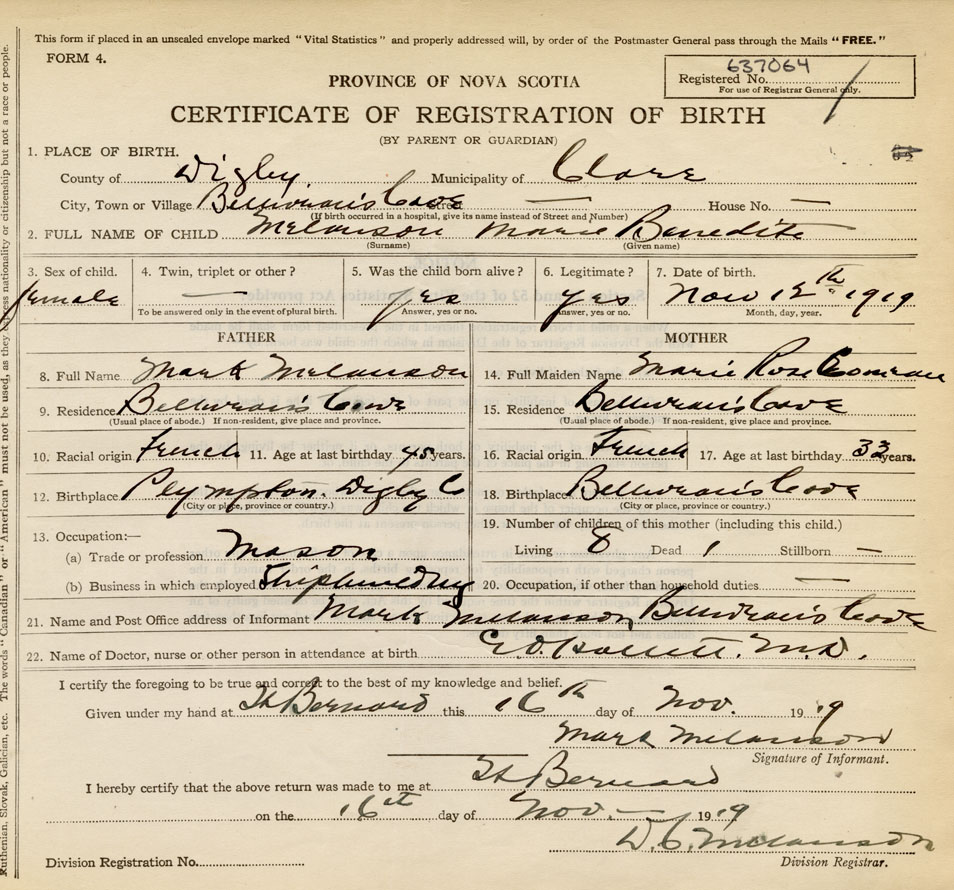 This form if placed in an unsealed envelope marked "Vital Statistics" and properly addressed will, by order of the Postmaster General pass through the Mails "FREE."
FORM 4.
637064
Registered No.
For use of Registrar General only.
PROVINCE OF NOVA SCOTIA
CERTIFICATE OF REGISTRATION OF BIRTH
(BY PARENT OR GUARDIAN)
1. PLACE OF BIRTH.
County of Digby Municipality of Clare
City, Town or Village Belliveau's Cove Street — House No. —
(If birth occurred in a hospital, give its name instead of Street and Number)
2. FULL NAME OF CHILD Melanson Marie Benedite
(Surname) (Given name)
3. Sex of child. 4. Twin, triplet or other? 5. Was the child born alive? 6. Legitimate? 7. Date of birth.
female — yes yes Nov 12th 1919
To be answered only in the event of plural birth. Answer, yes or no. Answer, yes or no. Month, day, year.
FATHER MOTHER
8. Full Name Mark Melanson 14. Full Maiden Name Marie Rose Comeau
9. Residence Belliveau's Cove 15. Residence Belliveau's Cove
(Usual place of abode.) If non-resident, give place and province. (Usual place of abode.) If non-resident, give place and province.
10. Racial origin French 11. Age at last birthday 45 years. 16. Racial origin French 17. Age at last birthday 33 years.
12. Birthplace Plympton. Digby Co 18. Birthplace Belliveau's Cove
(City or place, province or country.) (City or place, province or country.)
13. Occupation:— 19. Number of children of this mother (including this child.)
(a) Trade or profession Mason Living 8 Dead 1 Stillborn —
(b) Business in which employed 20. Occupation, if other than household duties —
21. Name and Post Office address of Informant Mark Melanson, Belliveau's Cove
22. Name of Doctor, nurse or other person in attendance at birth M.D.
I certify the foregoing to be true and correct to the best of my knowledge and belief.
Given under my hand at St Bernard this 16th day of Nov. 1919
Mark Melanson
Signature of Informant.
I hereby certify that the above return was made to me at St Bernard
on the 16th day of Nov. — 1919
Melanson
Division Registration No. Division Registrar.
Ruthenian, Slovak, Galician, etc. The words "Canadian" or "American" must not be used, as they express nationality or citizenship but not a race or people.